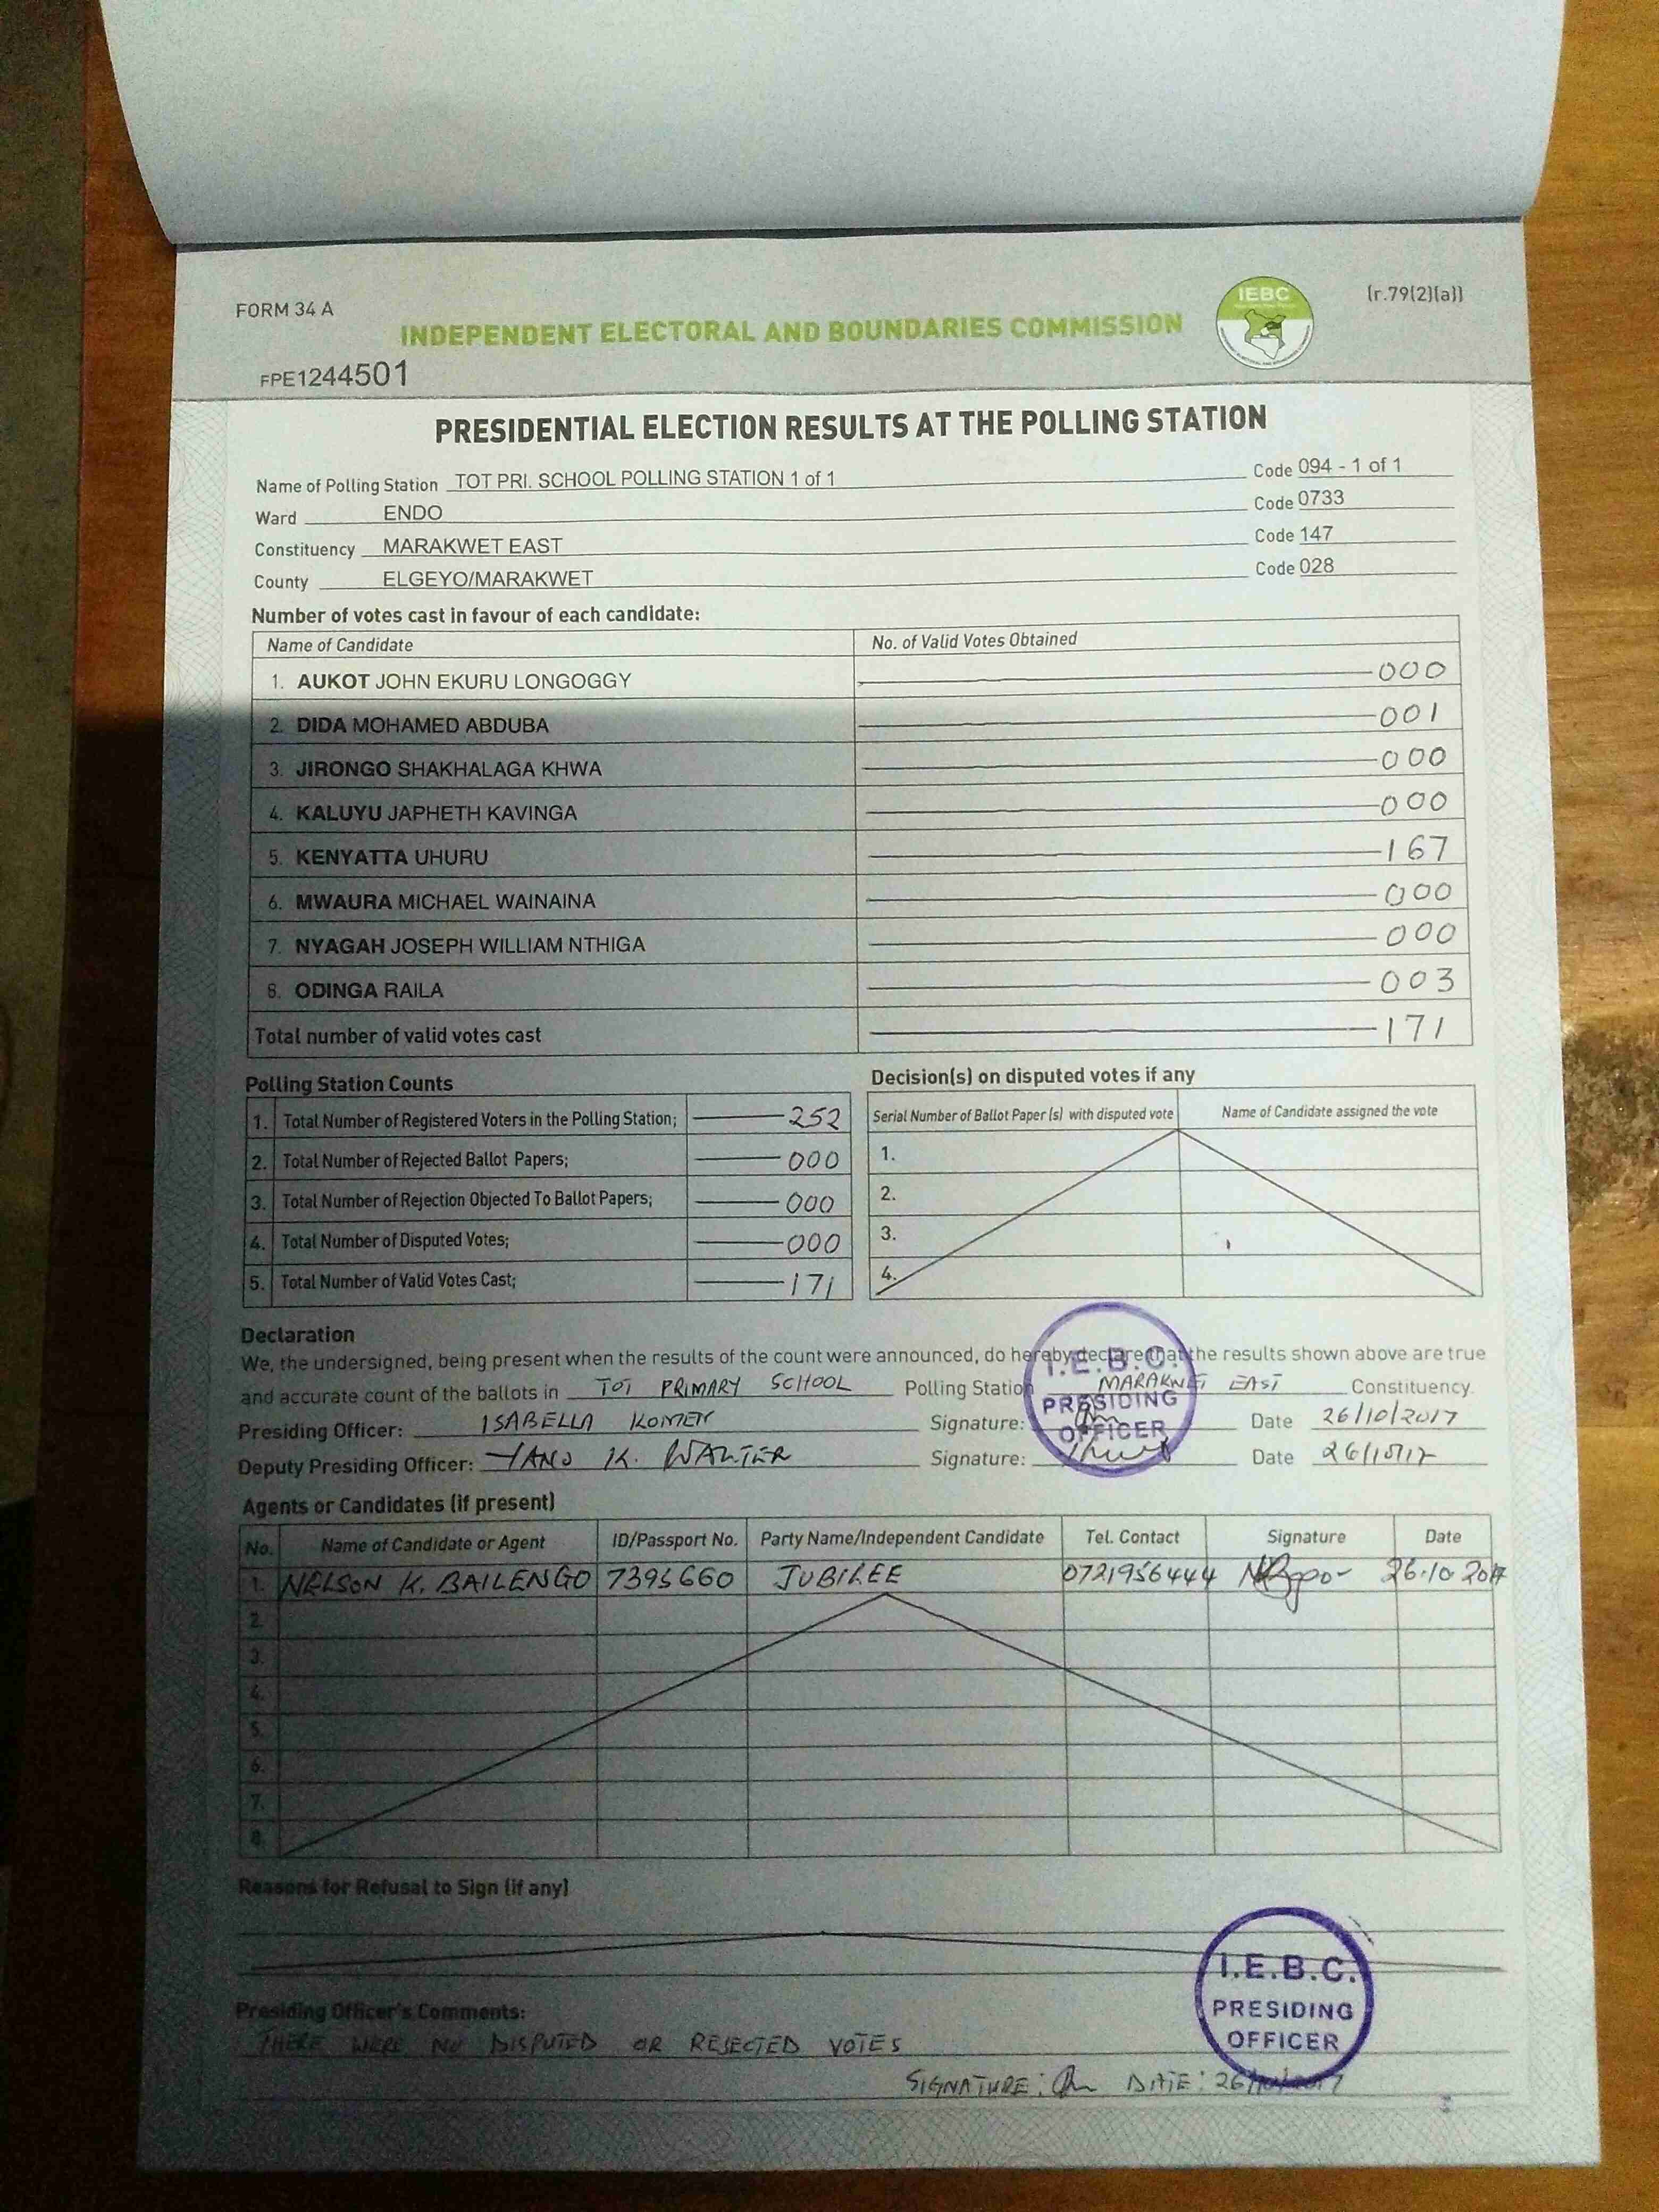 FORM 34 A
IEBC
(r.79(2)(a))
INDEPENDENT ELECTORAL AND BOUNDARIES COMMISSION
FPE1244501
PRESIDENTIAL ELECTION RESULTS AT THE POLLING STATION
Name of Polling Station TOT PRI. SCHOOL POLLING STATION 1 of 1 Code 094 - 1 of 1
Ward ENDO Code 0733
Constituency MARAKWET EAST Code 147
County ELGEYO/MARAKWET Code 028
Number of votes cast in favour of each candidate:
Name of Candidate No. of Valid Votes Obtained
1. AUKOT JOHN EKURU LONGOGGY 000
2. DIDA MOHAMED ABDUBA 001
3. JIRONGO SHAKHALAGA KHWA 000
4. KALUYU JAPHETH KAVINGA 000
5. KENYATTA UHURU 167
6. MWAURA MICHAEL WAINAINA 000
7. NYAGAH JOSEPH WILLIAM NTHIGA 000
8. ODINGA RAILA 003
Total number of valid votes cast 171
Polling Station Counts
1. Total Number of Registered Voters in the Polling Station; 252
2. Total Number of Rejected Ballot Papers; 000
3. Total Number of Rejection Objected To Ballot Papers; 000
4. Total Number of Disputed Votes; 000
5. Total Number of Valid Votes Cast; 171
Decision(s) on disputed votes if any
Serial Number of Ballot Paper (s) with disputed vote Name of Candidate assigned the vote
1.
2.
3.
4.
Declaration
We, the undersigned, being present when the results of the count were announced, do hereby declare that the results shown above are true
and accurate count of the ballots in TOT PRIMARY SCHOOL Polling Station MARAKWET EAST Constituency.
Presiding Officer: ISABELLA KOMEN Signature: Date 26/10/2017
Deputy Presiding Officer: YANO K. WALTER Signature: Date 26/10/17
I.E.B.C.
PRESIDING
OFFICER
Agents or Candidates (if present)
No. Name of Candidate or Agent ID/Passport No. Party Name/Independent Candidate Tel. Contact Signature Date
1. NELSON K. BAILENGO 7395660 JUBILEE 0721956444 26.10.2017
2.
3.
4.
5.
6.
7.
8.
Reasons for Refusal to Sign (if any)
I.E.B.C.
PRESIDING
OFFICER
Presiding Officer's Comments:
THERE WERE NO DISPUTED OR REJECTED VOTES
SIGNATURE: DATE: 26/10/2017